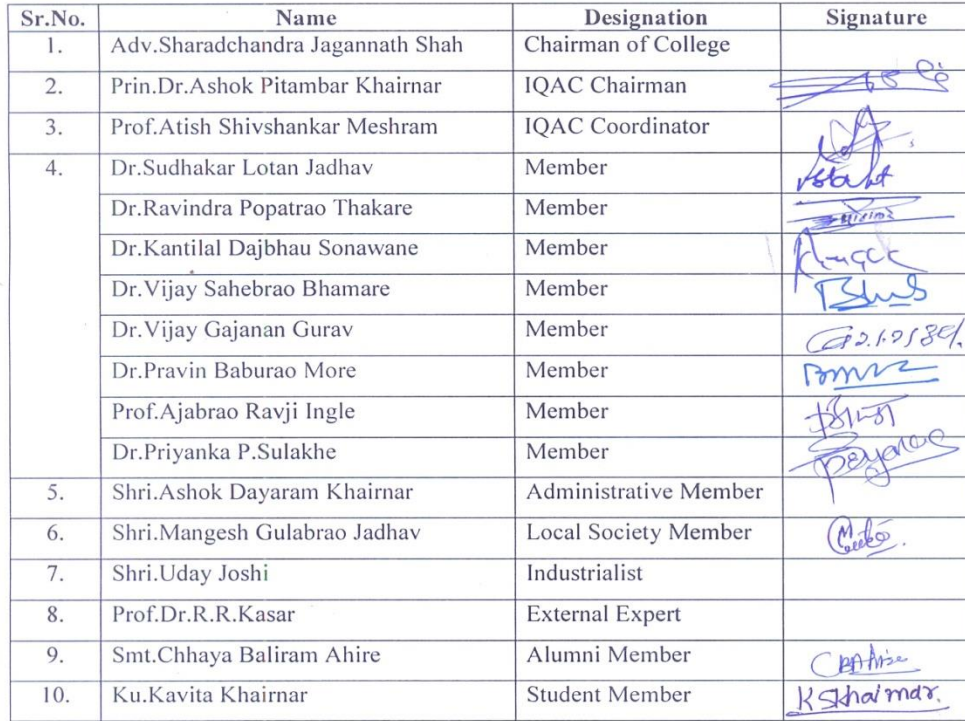 Sr.No. Name Designation Signature
1. Adv.Sharadchandra Jagannath Shah Chairman of College
2. Prin.Dr.Ashok Pitambar Khairnar IQAC Chairman
3. Prof.Atish Shivshankar Meshram IQAC Coordinator
4. Dr.Sudhakar Lotan Jadhav Member
Dr.Ravindra Popatrao Thakare Member
Dr.Kantilal Dajbhau Sonawane Member
Dr.Vijay Sahebrao Bhamare Member
Dr.Vijay Gajanan Gurav Member
Dr.Pravin Baburao More Member
Prof.Ajabrao Ravji Ingle Member
Dr.Priyanka P.Sulakhe Member
5. Shri.Ashok Dayaram Khairnar Administrative Member
6. Shri.Mangesh Gulabrao Jadhav Local Society Member
7. Shri.Uday Joshi Industrialist
8. Prof.Dr.R.R.Kasar External Expert
9. Smt.Chhaya Baliram Ahire Alumni Member
10. Ku.Kavita Khairnar Student Member KSKhairnar.